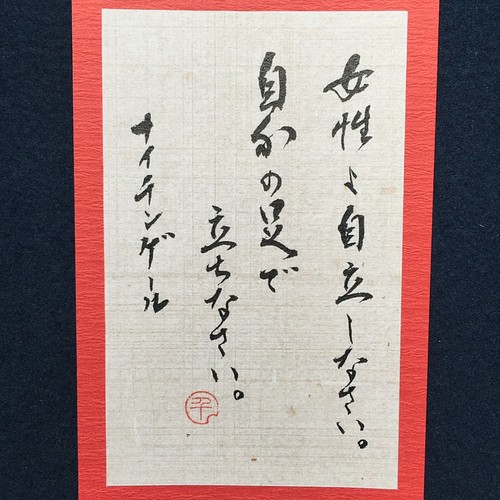 女性よ自立しなさい。
自分の足で
立ちなさい。
ナイチンゲール